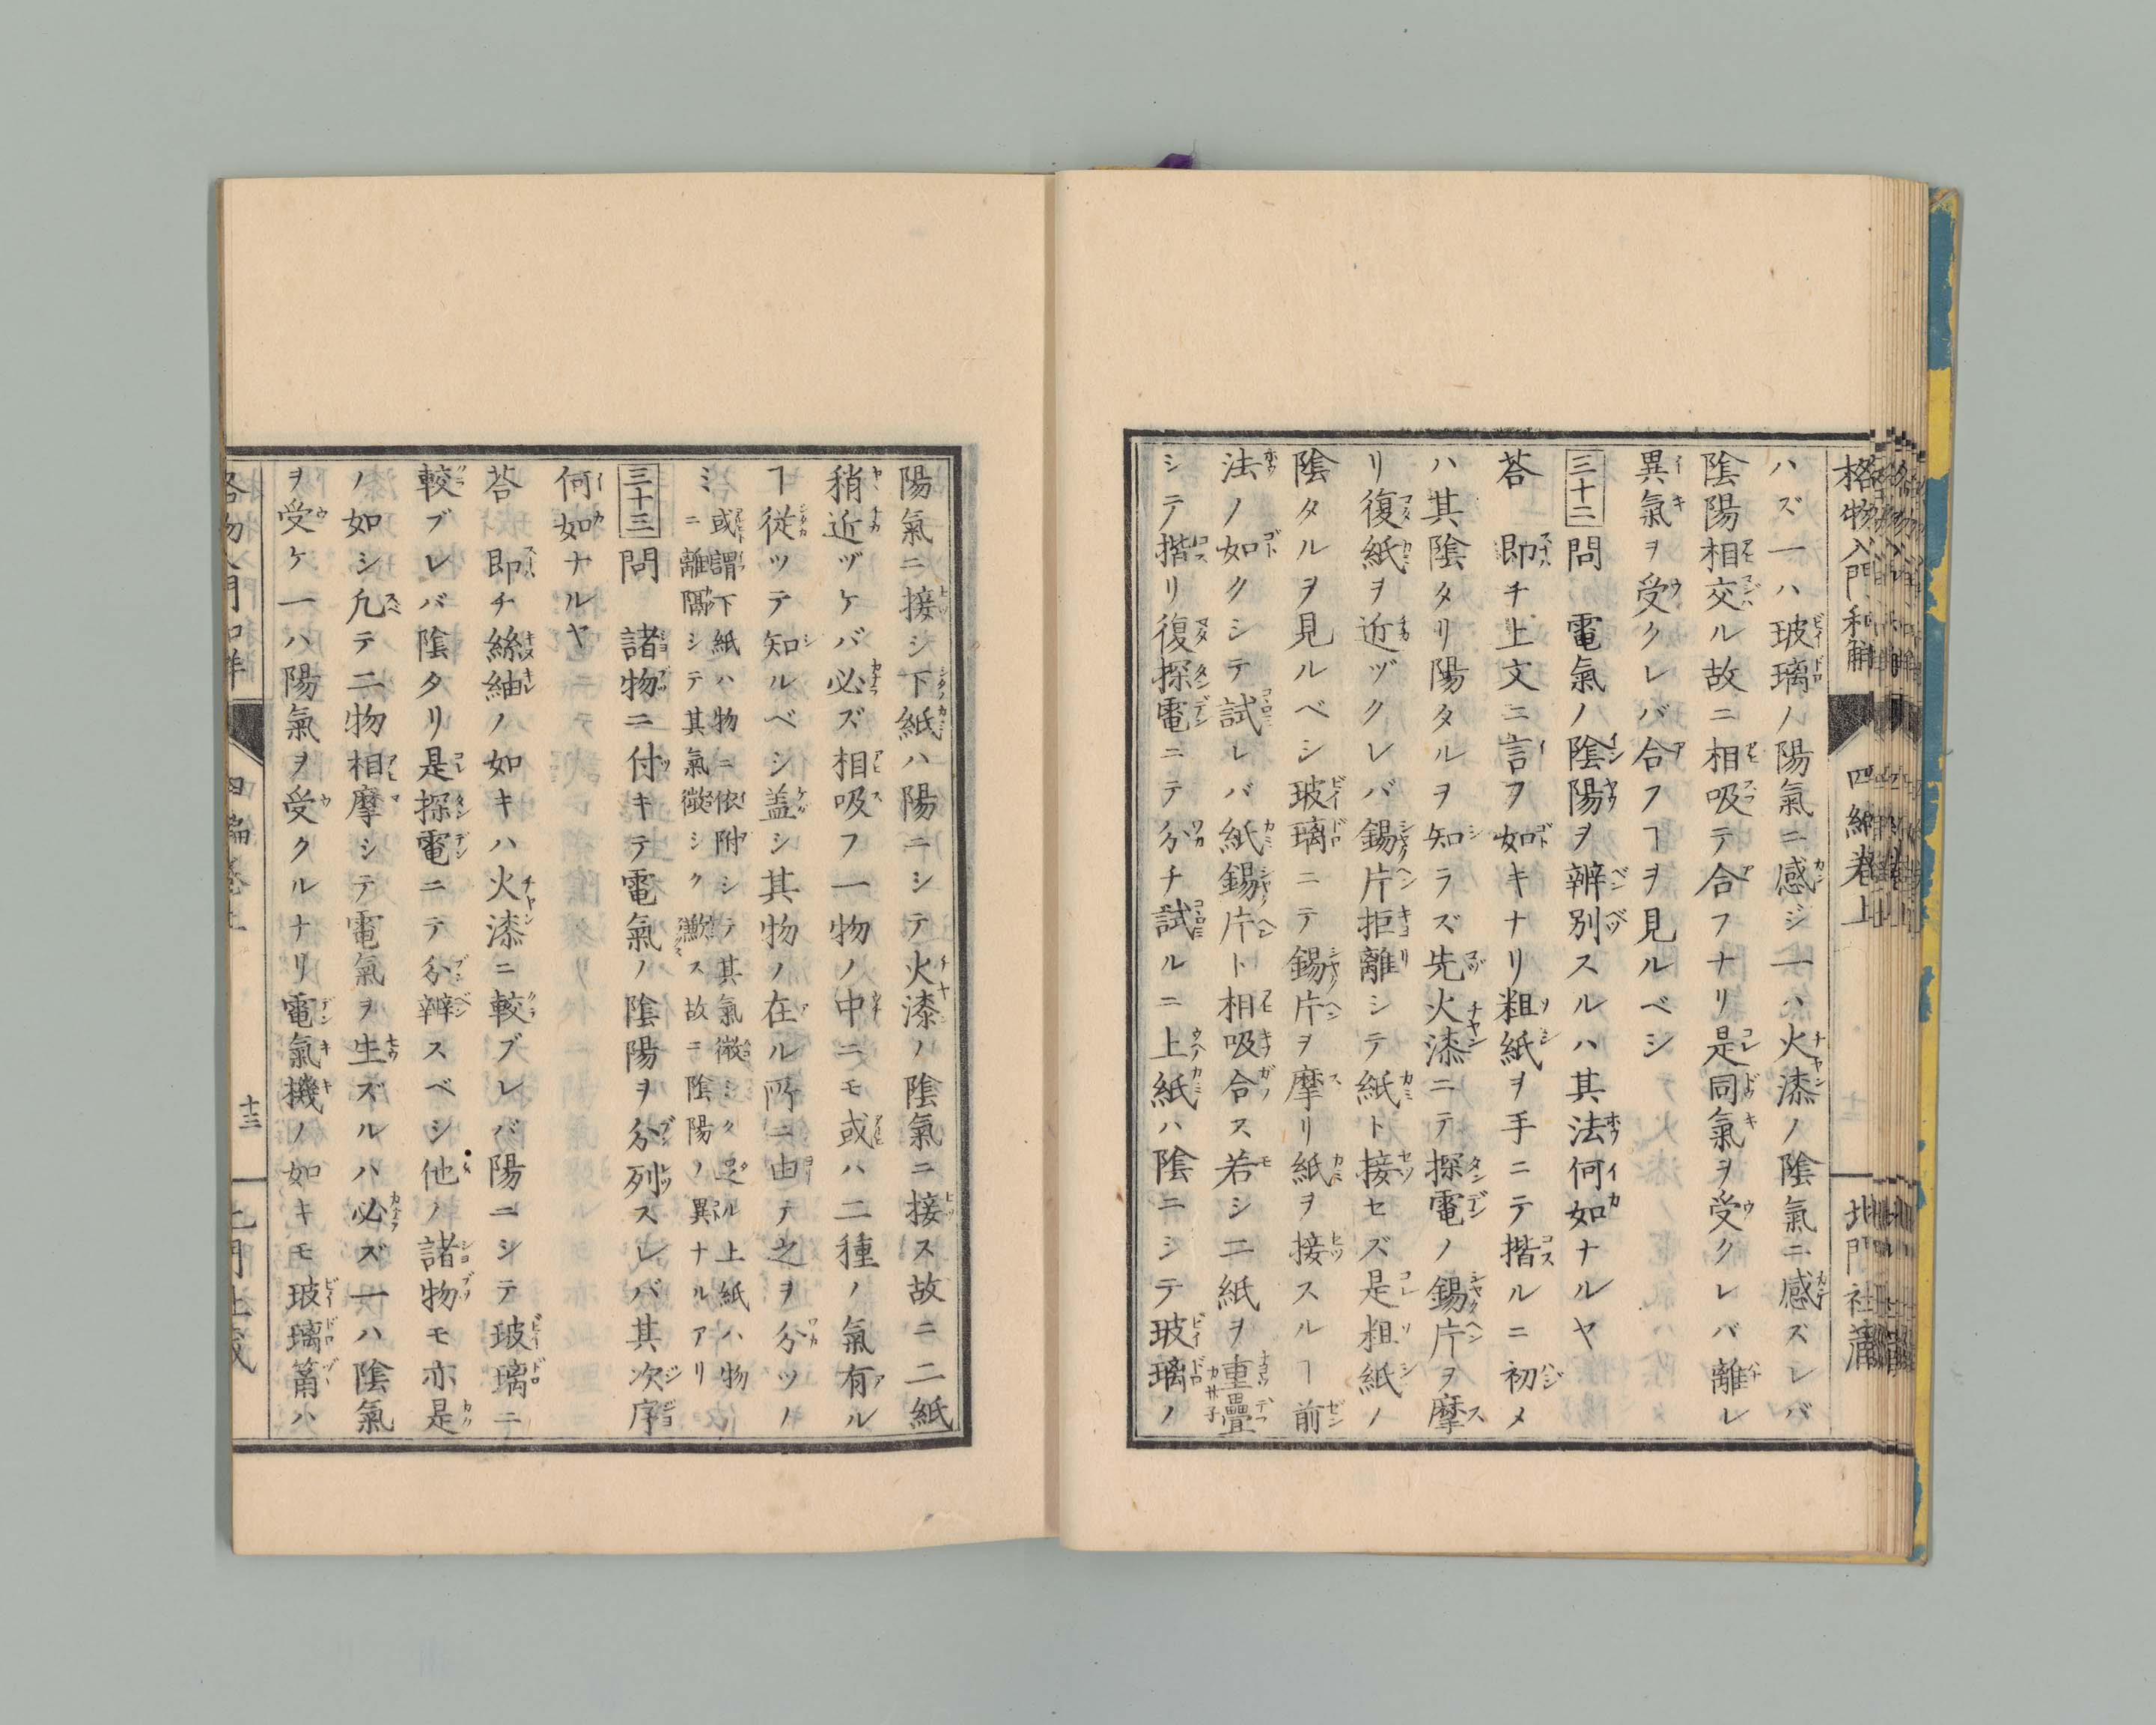 格物入門和解
四編巻上
北門社藏
ハズ一ハ玻璃ノ陽氣ニ感ジ一ハ火漆ノ陰氣ニ感ズレバ
陰陽相交ル故ニ相吸テ合フナリ是同氣ヲ受クレバ離レ
異氣ヲ受クレバ合フヿヲ見ルベシ
三十二問　電氣ノ陰陽ヲ辨別スルハ其法何如ナルヤ
荅　即チ上文ニ言フ如キナリ粗紙ヲ手ニテ揩ルニ初メ
ハ其陰タリ陽タルヲ知ラズ先火漆ニテ探電ノ錫片ヲ摩
リ復紙ヲ近ヅクレバ錫片拒離シテ紙ト接セズ是粗紙ノ
陰タルヲ見ルベシ玻璃ニテ錫片ヲ摩リ紙ヲ接スルヿ前
法ノ如クシテ試レバ紙錫片ト相吸合ス若シ二紙ヲ重疊
シテ揩リ復探電ニテ分チ試ルニ上紙ハ陰ニシテ玻璃ノ
陽氣ニ接シ下紙ハ陽ニシテ火漆ノ陰氣ニ接ス故ニ二紙
稍近ヅケバ必ズ相吸フ一物ノ中ニモ或ハ二種ノ氣有ル
ヿ從ツテ知ルベシ盖シ其物ノ在ル所ニ由テ之ヲ分ツノ
ミ
或謂下紙ハ物ニ依附シテ其氣微ミク足ル上紙ハ物
ニ離隔シテ其氣微シク歉ス故ニ陰陽ノ異ナルアリ
三十三問　諸物ニ付キテ電氣ノ陰陽ヲ分列スレバ其次序
何如ナルヤ
荅　即チ絲紬ノ如キハ火漆ニ較ブレバ陽ニシテ玻璃ニ
較ブレバ陰タリ是探電ニテ分辨スベシ他ノ諸物モ亦是
ノ如シ凢テ二物相摩シテ電氣ヲ生ズルハ必ズ一ハ陰氣
ヲ受ケ一ハ陽氣ヲ受クルナリ電氣機ノ如キモ玻璃筩ハ
十三